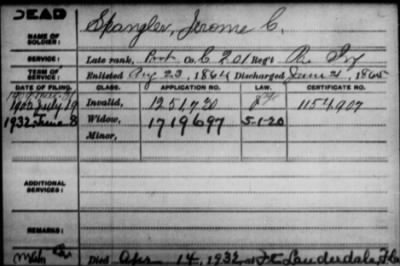 DEAD
NAME OF SOLDIER: Spangler, Jerome C.
SERVICE: Late rank, Pvt Co. C, 201 Reg't Pa. Inf
TERM OF SERVICE: Enlisted Aug 23, 1864 Discharged June 21, 1865
DATE OF FILING. CLASS. APPLICATION NO. LAW. CERTIFICATE NO.
1902 July 19 Invalid, 1251720 1154907
1932 June 8 Widow, 1719697 5-1-20
Minor,
ADDITIONAL SERVICES:
REMARKS:
Died Apr 14, 1932, at Ft Lauderdale, Fla